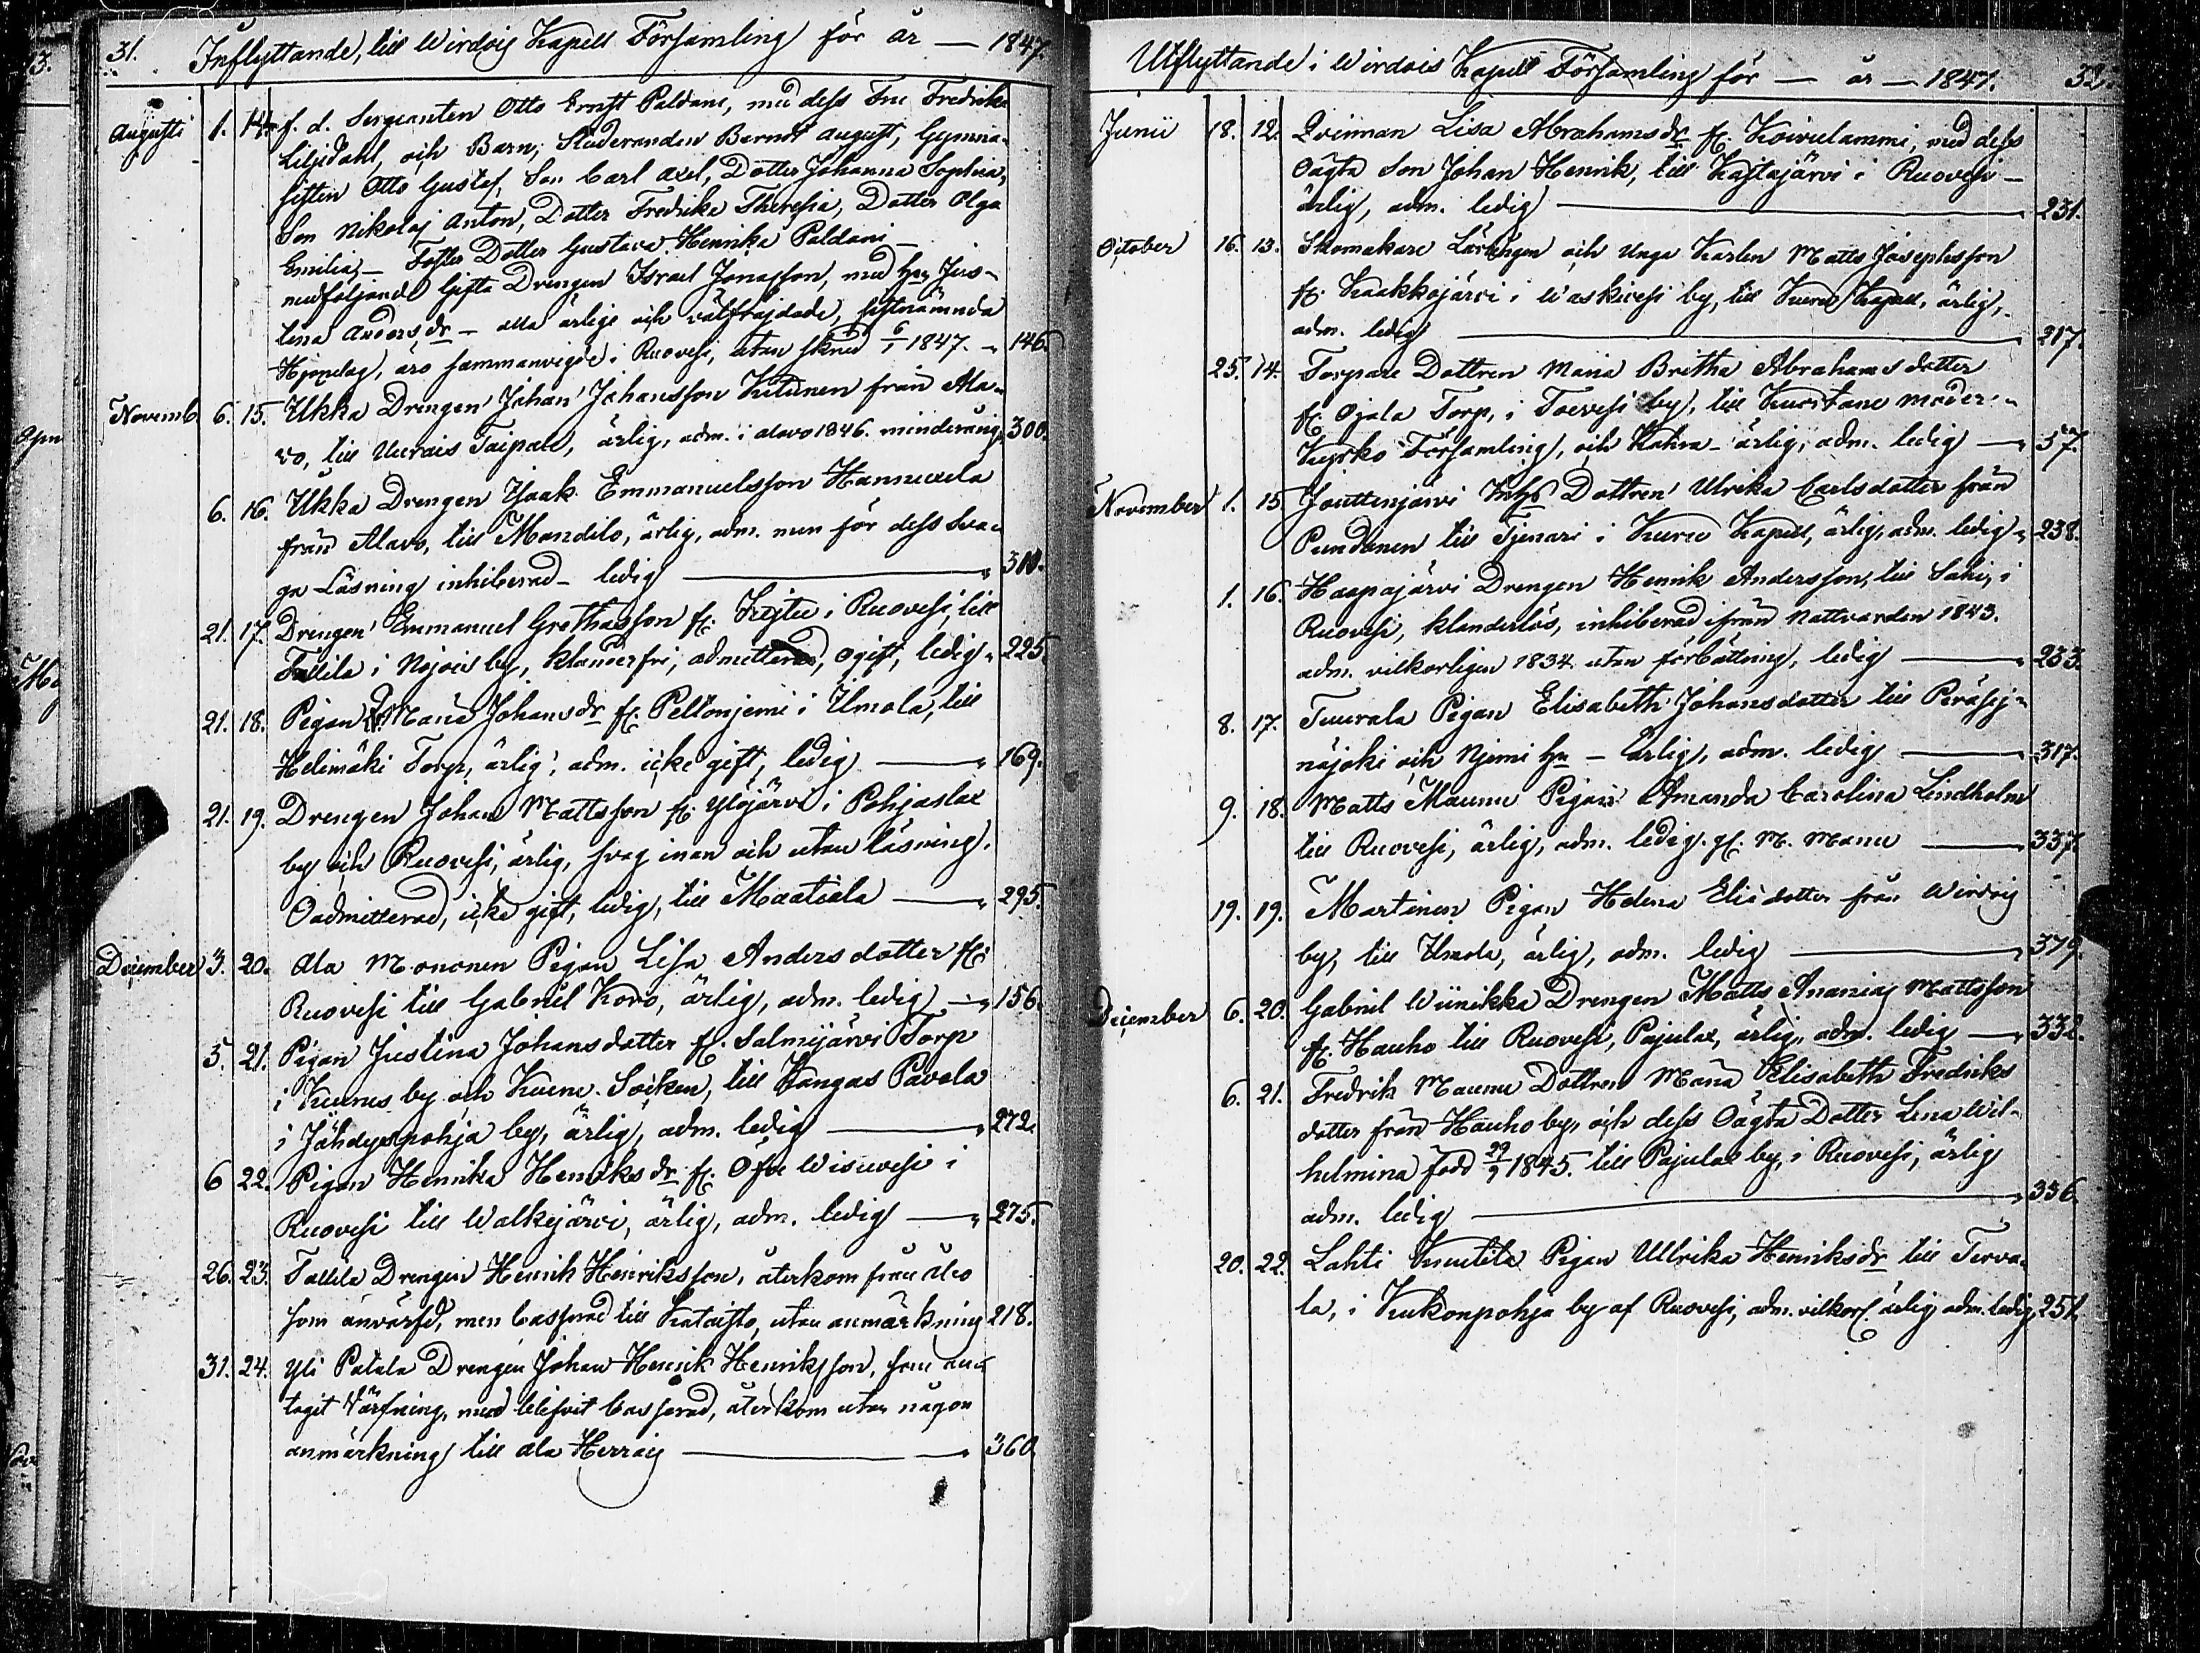 31. Inflyttande, till Wirdois Kapell Församling för år — 1847.
Augusti 1. 14. f. d. Sergeanten Otto Ernst Paldani, med dess Fru Fredrika
Liljedahl, och Barn, Studeranden Berndt August, Gymna-
sisten Otto Gustaf, Son Carl Axel, Dotter Johanna Sophia,
Son Nikolaj Anton, Dotter Fredrika Theresia, Dotter Olga
Emilia, — Foster Dotter Gustava Henrika Paldani —
medföljande Gifta Drengen Israel Jonasson, med Hru Jus-
tina Andersdr — alla ärlige och välfräjdade, sistnämnda
Hjonelag, äro sammanvigde i Ruovesi, utan sknd 6/1 1847. 146.
Novemb. 6. 15. Ukka Drengen Johan Johansson Kitunen från Ala-
vo, till Uurais Taipale, ärlig, adm. i Alavo 1846. minderårig 300.
6. 16. Ukka Drengen Isaak Emmanuelsson Hannuxela
från Alavo, till Mandilo, ärlig, adm. men för dess sva-
ga Läsning inhiberad — ledig — 310.
21. 17. Drengen Emmanuel Grethasson fr. i Ruovesi, till
i by, klanderfri, admitterad, ogift, ledig 225.
21. 18. Pigan Maria Johansdr fr. Peltonjemi i Ilmola, till
Helimäki Torp, ärlig, adm. icke gift, ledig — 169.
21. 19. Drengen Johan Mattsson fr. Ylöjärvi i Pohjaslax
by och Ruovesi, ärlig, svag inan och utan läsning,
Oadmitterad, icke gift, ledig, till Maatiala — 295.
December 3. 20. Ala Mononen Pigan Lisa Andersdotter fr.
Ruovesi till Gabriel Koro, ärlig, adm. ledig — 156.
5. 21. Pigan Justina Johansdotter fr. Salmijärvi Torp
i Kurus by och Kuru Socken, till Kangas Pavola
i Jähdyspohja by, ärlig, adm. ledig — 272.
6 22. Pigan Henrika Henriksdr fr. Öfre Wisuvesi i
Ruovesi till Walkejärvi, ärlig, adm. ledig — 275.
26. 23. Tallila Drengen Henrik Henriksson, återkom från Åbo
som anvärfd, men Casserad till Kataisto, utan anmärkning 218.
31. 24. Yli Patala Drengen Johan Henrik Henriksson, som an-
tagit Värfning, men blifvit Casserad, återkom utan någon
anmärkning till Ala Herrais — 360
Utflyttande i Wirdois Kapell Församling för — år — 1847. 32.
Junii 18. 12. Qvinnan Lisa Abrahamsdr fr. Koivulammi, med dess
Oägta Son Johan Henrik, till Kajtajärvi i Ruovesi —
ärlig, adm. ledig — 231.
October 16. 13. Skomakare Lärlingen och Unga Karlen Matts Josephsson
fr. Kaakkojärvi i Waskivesi by, till Kuru Kapell, ärlig,
adm. ledig — 217.
25. 14. Torpare Dottren Maria Britha Abrahamsdotter
fr. Ojala Torp, i Toivesi by, till Kuortane moder-
Kyrko Församling, och Kahra — ärlig, adm. ledig — 57.
November 1. 15 Jouttenjärvi Inhs Dottren Ulrika Carlsdotter från
Pundanen till Tjenari i Kuru Kapell, ärlig, adm. ledig 238.
1. 16. Haapajärvi Drengen Henrik Andersson, till Sahi, i
Ruovesi, klanderlös, inhiberad ifrån Nattvarden 1843.
adm. vilkorligen 1834 utan förbättring, ledig — 233.
8. 17. Tuurala Pigan Elisabeth Johansdotter till Peräsej-
näjoki och Njemi Hn — ärlig, adm. ledig — 317.
9. 18. Matts Maunu Pigan Amanda Carolina Lindholm
till Ruovesi, ärlig, adm. ledig. fr. M. Manu — 337.
19. 19. Martinen Pigan Helena Eliædotter från Wirdois
by, till Ilmola, ärlig, adm. ledig — 379.
December 6. 20. Gabriel Wiinikka Drengen Matts Ananias Mattsson
fr. Hauho till Ruovesi, Pajulax, ärlig, adm. ledig — 332.
6. 21. Fredrik Maunu Dottren Maria Elisabeth Fredriks
dotter från Hauho by, och dess Oägta Dotter Lena Wil-
helmina född 29/9 1845. till Pajulax by, i Ruovesi, ärlig
adm. ledig — 336.
20. 22. Lahti Knuutila Pigan Ullrika Henriksdr till Terva-
la, i Kukonpohja by af Ruovesi, adm. vilkorl. ärlig adm. ledig 251.